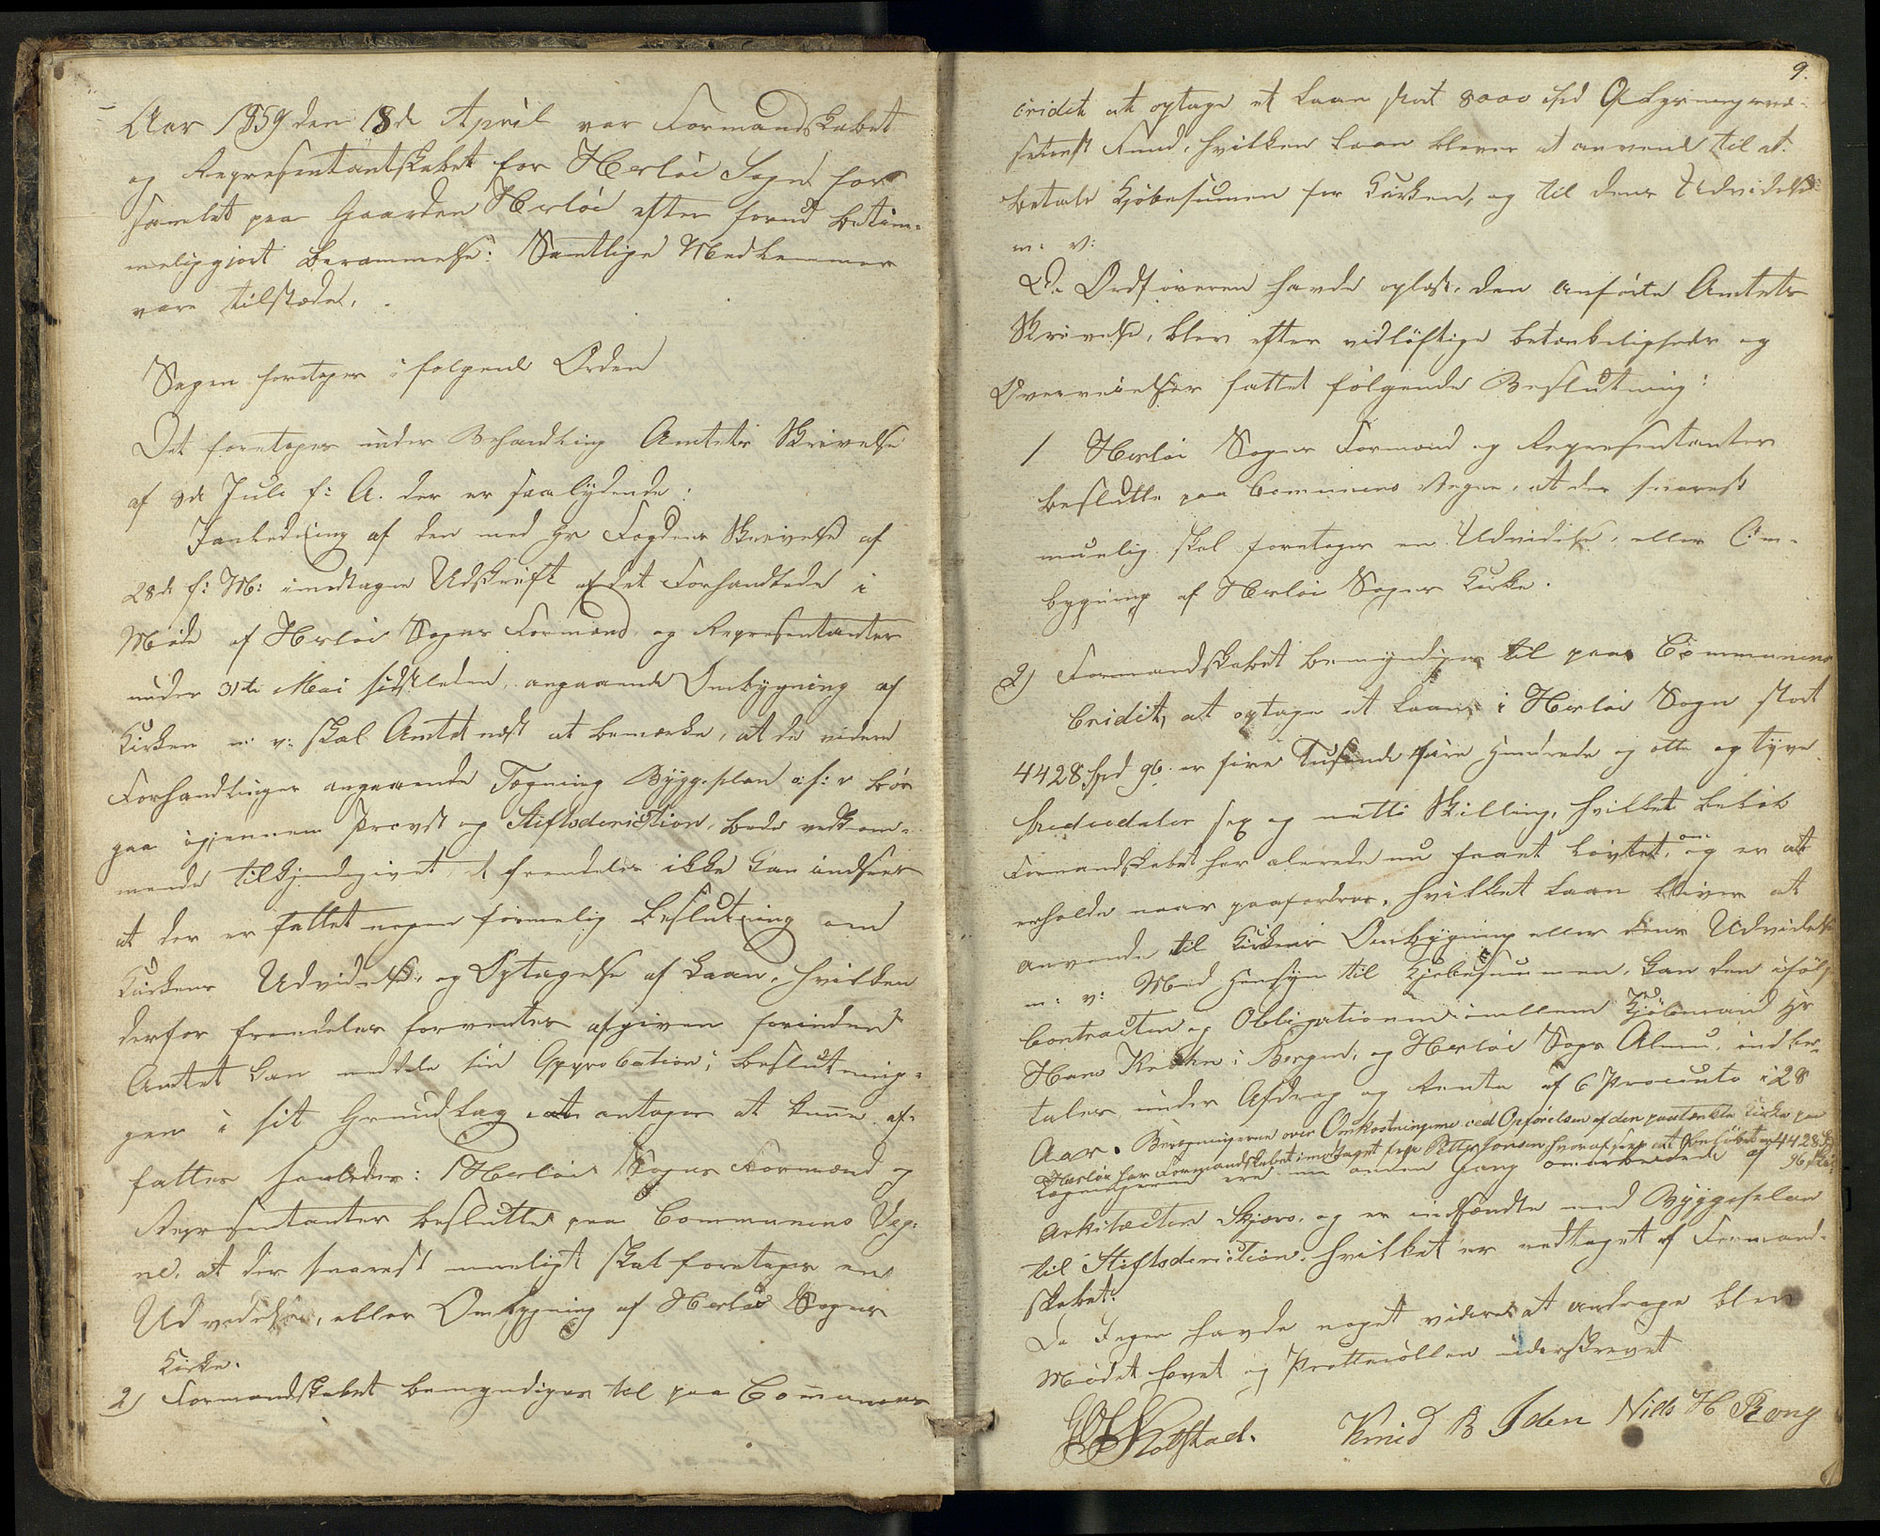 Aar 1859 den 18de April var Formandskabet
og Repræsentantskabet for Herlöe Sogn for
samlet paa Gaarden Herlöe efter forud betim-
meliggjort Berammelse. Samtlige Medlemmer
vare tilstæde.
Sagen foretages i følgende Orden
Det foretages under Behandling Amtets Skrivelse
af 8de Juli f: A. der er saalydende:
I Anledning af den med Hr Fogdens Skrivelse af
28de f: M: modtagne Udskrift af det Forhandlede i
Møde af Herlöe Sogns Formænd og Repræsentanter
under 31te Mai sidstleden, angaaende Ombygning af
Kirken m: v: skal Amtet næst at bemærke, at de videre
Forhandlinger angaaende Tegning Byggeplan o: s: v bør
gaa igjennem Provst og Stiftsdirection, bede vedkom-
mende tilkjendegivet, at fremdeles ikke kan indsees
at der er fattet nogen formelig Beslutning om
Kirkens Udvidelse, og Optagelse af Laan, hvilken
derfor fremdeles forventes afgiven forinden
Amtet kan meddele sin Approbation; Beslutnin-
gen i sit Grundlag antages at kunne af-
fattes saaledes: 1 Herlöe Sogns Formænd og
Repræsentanter beslutte paa Communens Veg-
ne, at der snarest mueligt skal foretages en
Udvidelse, eller Ombygning af Herlöe Sogns
Kirke.
2) Formandskabet bemyndiges til paa Communens
9.
Credit at optage et Laan stort 8000 Spd Oplysningsvæ-
senets Fond, hvilken Laan bliver at anvende til at
betale Kjøbesumen for Kirken, og til dens Udvidelse
m: v:
Da Ordføreren havde oplæst, den anførte Amtets
Skrivelse, blev efter vidløftige Betænkeligheder og
Overveielser fattet følgende Beslutning:
1 Herlöe Sogns Formænd og Repræsentanter
beslutte paa Communens Vegne, at der snarest
muelig skal foretages en Udvidelse, eller Om-
bygning af Herlöe Sogns Kirke.
2) Formandskabet bemyndiges til paa Communens
Credit, at optage et Laan i Herlöe Sogn stort
4428 Spd 96. er fire Tusinde fire Hundrede og otte og tyve
Speciedaler sex og nitti Skilling, hvilket Beløb
Formandskabet har alerede nu faaet Løvte om, og er at
erholde naar paafordres, hvilket Laan bliver at
anvende til Kirkens Ombygning eller dens Udvidelse
m: v: Med Hensyn til Kjøbesummen, kan den ifølge
Contracten og Obligationen imellem Kjøbmand Hr
Hans Krohn i Bergen, og Herlöe Sogs Almu. indbe-
tales under Afdrag og Renta af 6 Procento i 28
Aar. Beregningerne over Omkostningerne ved Opførelsen af den paatænkte Kirke paa
Herlöe har Formandskabet imodtaget fra Petter Jonsen hvoraf sees at Beløbet er 4428 Sp
96 Skil
Tegningerne ere nu anden Gang omarbeidede af
Arkitecten Skjæro, og er indsendte med Byggeplan
til Stiftsdirection. hvilket er vedtaget af Formand-
skabet.
Da Ingen havde noget videre at andrage blev
Mødet hævet og Prottocollen underskrevet
Kolstad. Knud B Iden Nills H Rong